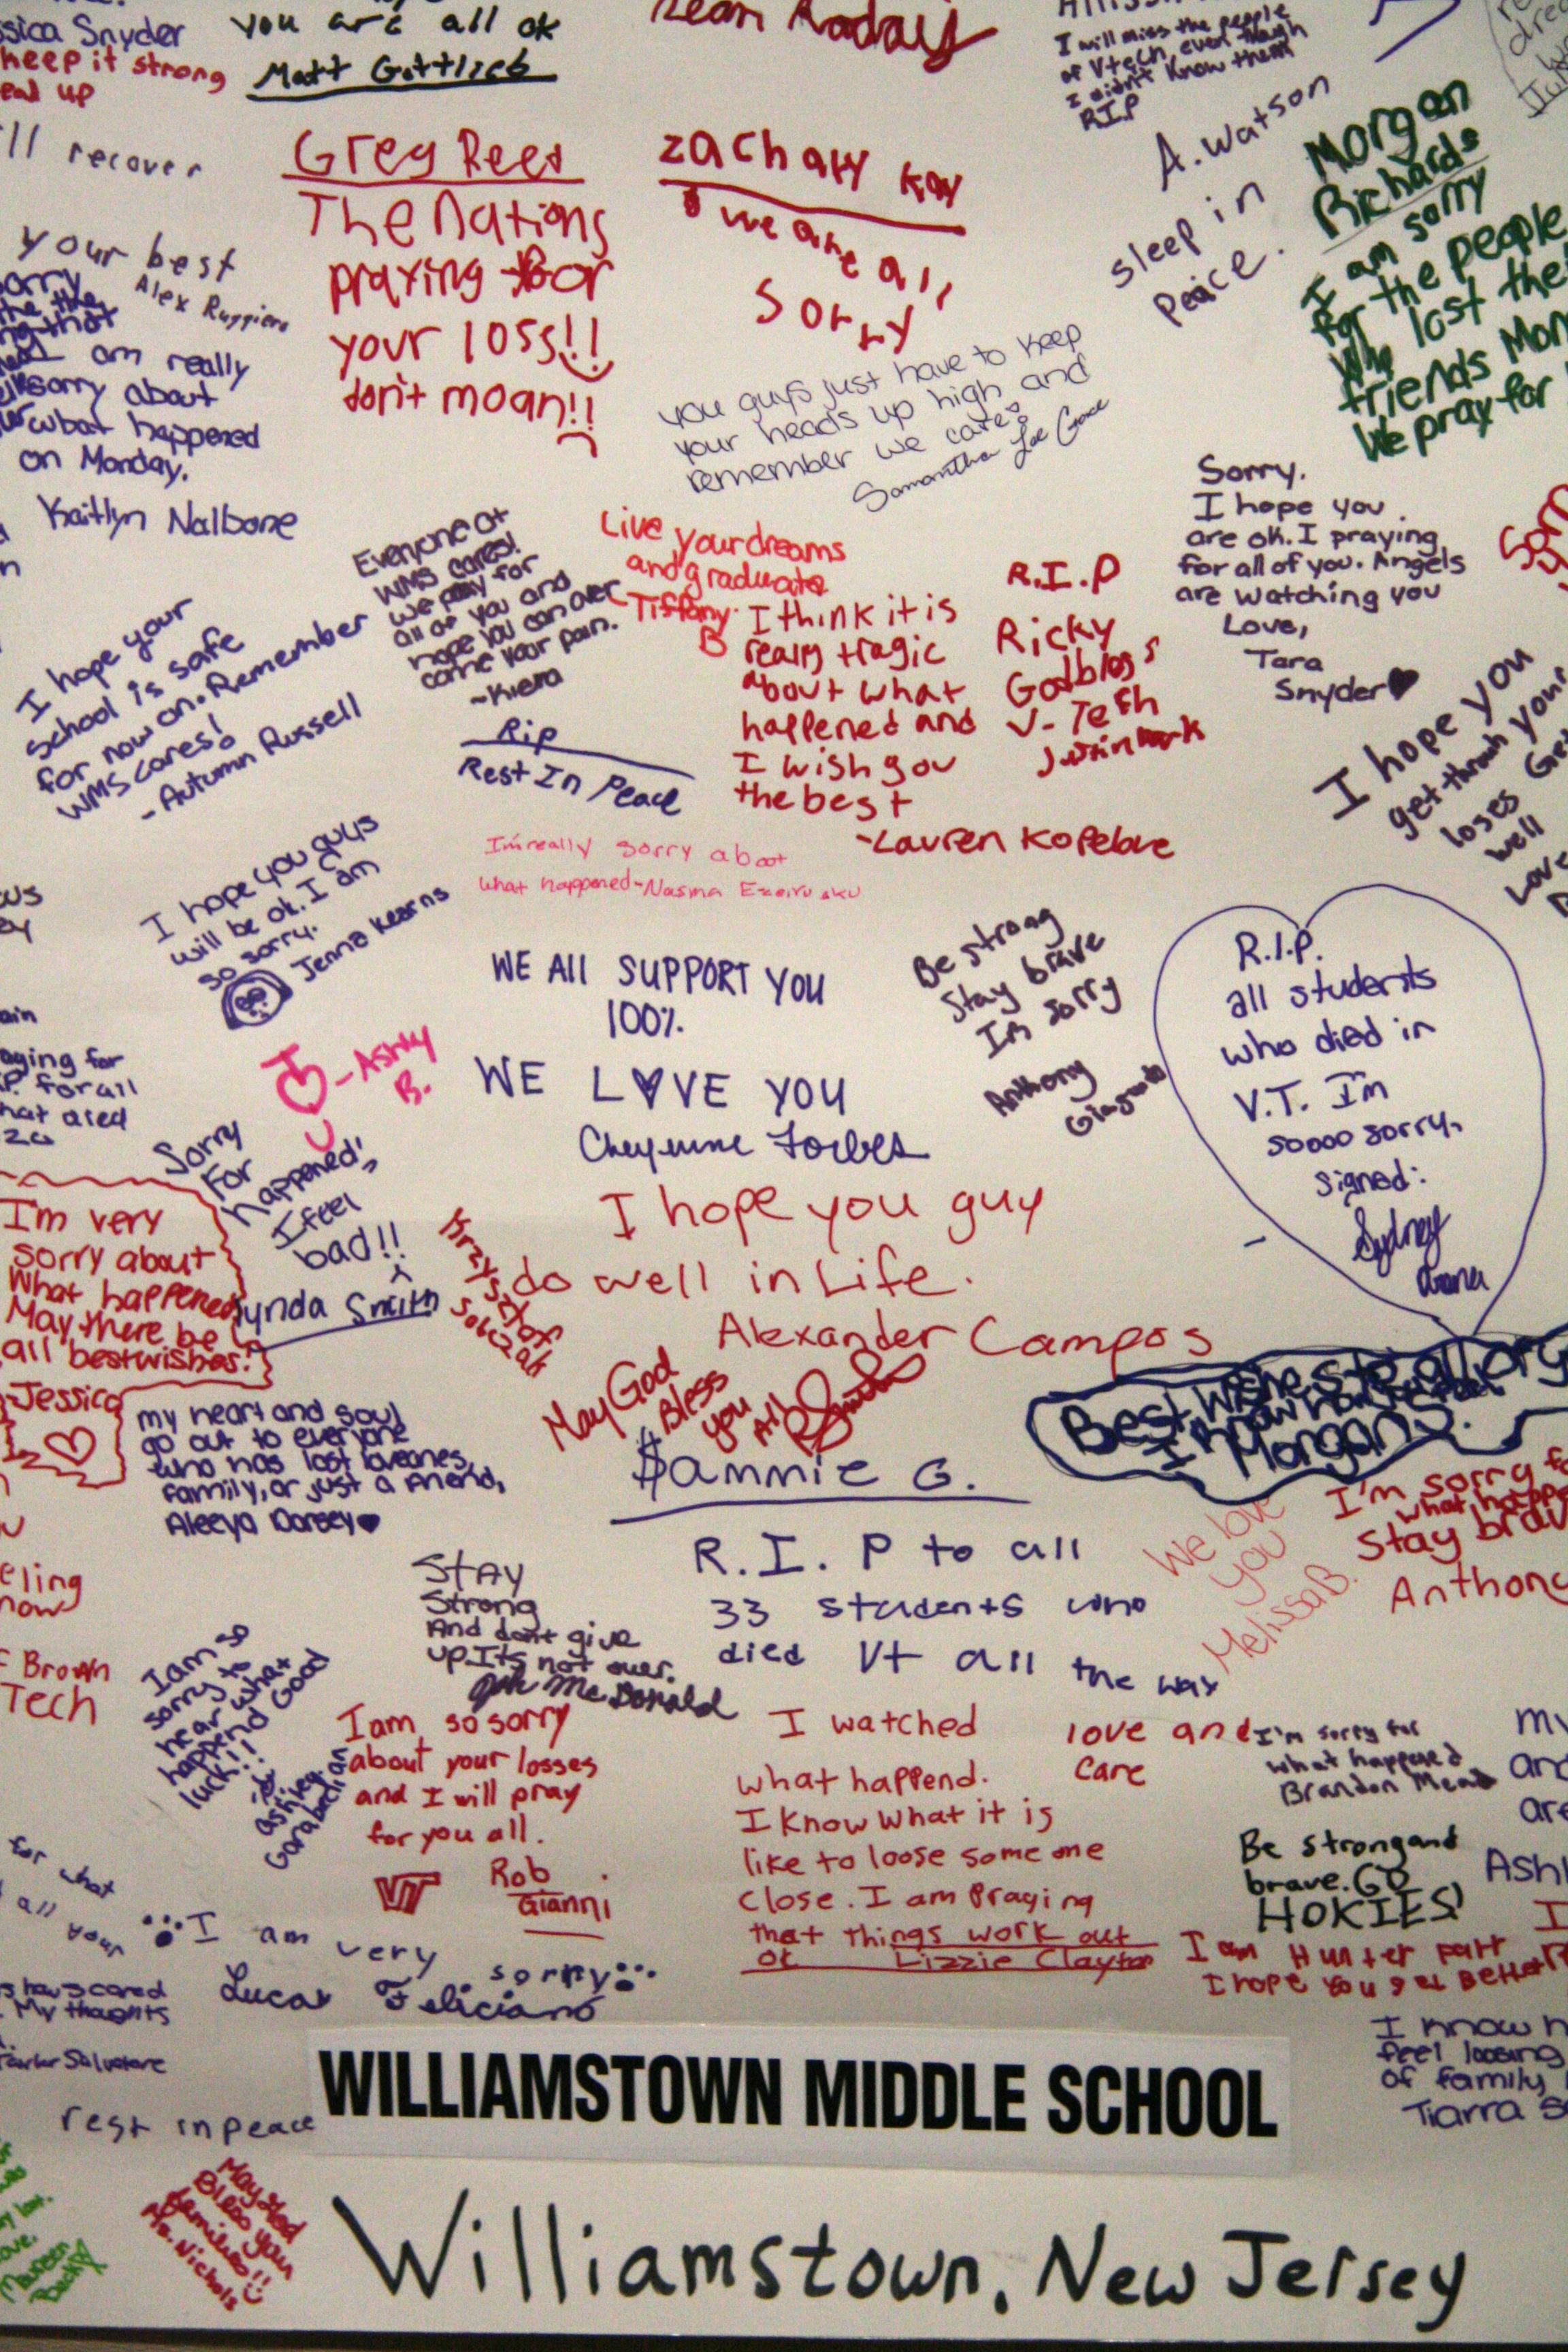 ssica Snyder
keep it strong
you are all ok
Matt Gottlieb
I will miss the people
of Vtech even though
I didn't know them
R.I.P
A. Watson
sleep in
peace.
Morgan
Richards
I am sorry
for the people
who lost the
friends
We pray for
ll recover
your best
Alex Ruggiero
Greg Reed
The Nations
praying for
your loss!!
don't moan!!
zachary Kay
we are all
sorry
am really
sorry about
what happened
on Monday.
Kaitlyn Nalbone
you guys just have to keep
your heads up high and
remember we care
Samantha Lee Grace
Sorry.
I hope you
are ok. I praying
for all of you. Angels
are watching you
Love,
Tara
Snyder
Everyone at
WMS cares!
we pray for
all of you and
hope you can over
come your pain.
~Kiera
Live your dreams
and graduate
-Tiffany
B
R.I.P
Ricky
Godbless
V-Tech
I think it is
really tragic
about what
happened and
I wish you
the best
-Lauren Kopelove
I hope your
school is safe
for now on. Remember
WMS cares!
- Autumn Russell
Rip
Rest In Peace
I hope you
get through your
loses
well
Love
I'm really sorry about
what happened-Nasma
I hope you guys
will be ok. I am
so sorry.
Jenna Kearns
WE All SUPPORT YOU
100%.
WE L♥VE YOU
Cheyenne Forbes
Be strong
Stay brave
Im sorry
Anthony
R.I.P.
all students
who died in
V.T. I'm
soooo sorry.
signed:
Sydney
-Ashly
B.
Sorry
For
happened!
I feel
bad!!
Lynda Smith
I'm very
sorry about
What happened
May there be
all bestwishes!
-Jessica
Krzysztof
Sobczak
I hope you guy
do well in Life.
Alexander Campos
May God
Bless
you
All
$ammie G.
Best wishes to all
I know how
Morgan
my heart and soul
go out to everyone
who has lost loveones,
family, or just a friend,
Aleeya Dorsey
I'm sorry fo
what happe
Stay brav
Anthony
We love
you
Melissa B.
R.I.P to all
33 students who
died Vt all the way
Stay
Strong
And don't give
up. Its not over.
McDonald
Brown
Tech
I am so
sorry to
hear what
happend Good
luck!!
Ashley
Garabedian
I am so sorry
about your losses
and I will pray
for you all.
VT
Rob
Gianni
I watched
what happend.
I know what it is
like to loose some one
close. I am Praying
that things work out
ok Lizzie Clayton
love and
care
I'm sorry for
what happened
Brandon Mead
Be strong and
brave. GO
HOKIES!
I am Hunter Parr
I hope you get Better
I am very sorry
Lucas Feliciano
My thoughts
I know h
feel loosing
of family
Tiarra S
rest in peace
May God
Bless your
families!!
Ms. Nichols
WILLIAMSTOWN MIDDLE SCHOOL
Williamstown, New Jersey